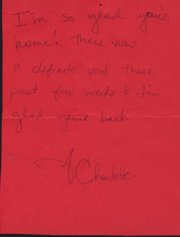 I'm so glad you're
home! There was
a definate void these
past few weeks & I'm
glad your back.
Charlotte